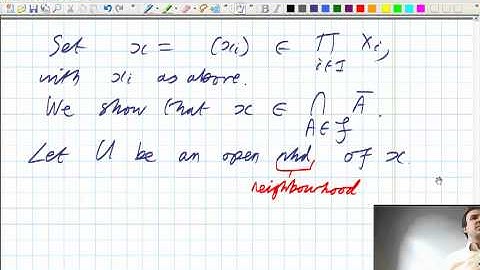 Set x = (xi) ∈ ∏ Xi,
i∈I
with xi as above.
We show that x ∈ ⋂ Ā.
A∈f
Let U be an open nhd, of x.
neighbourhood